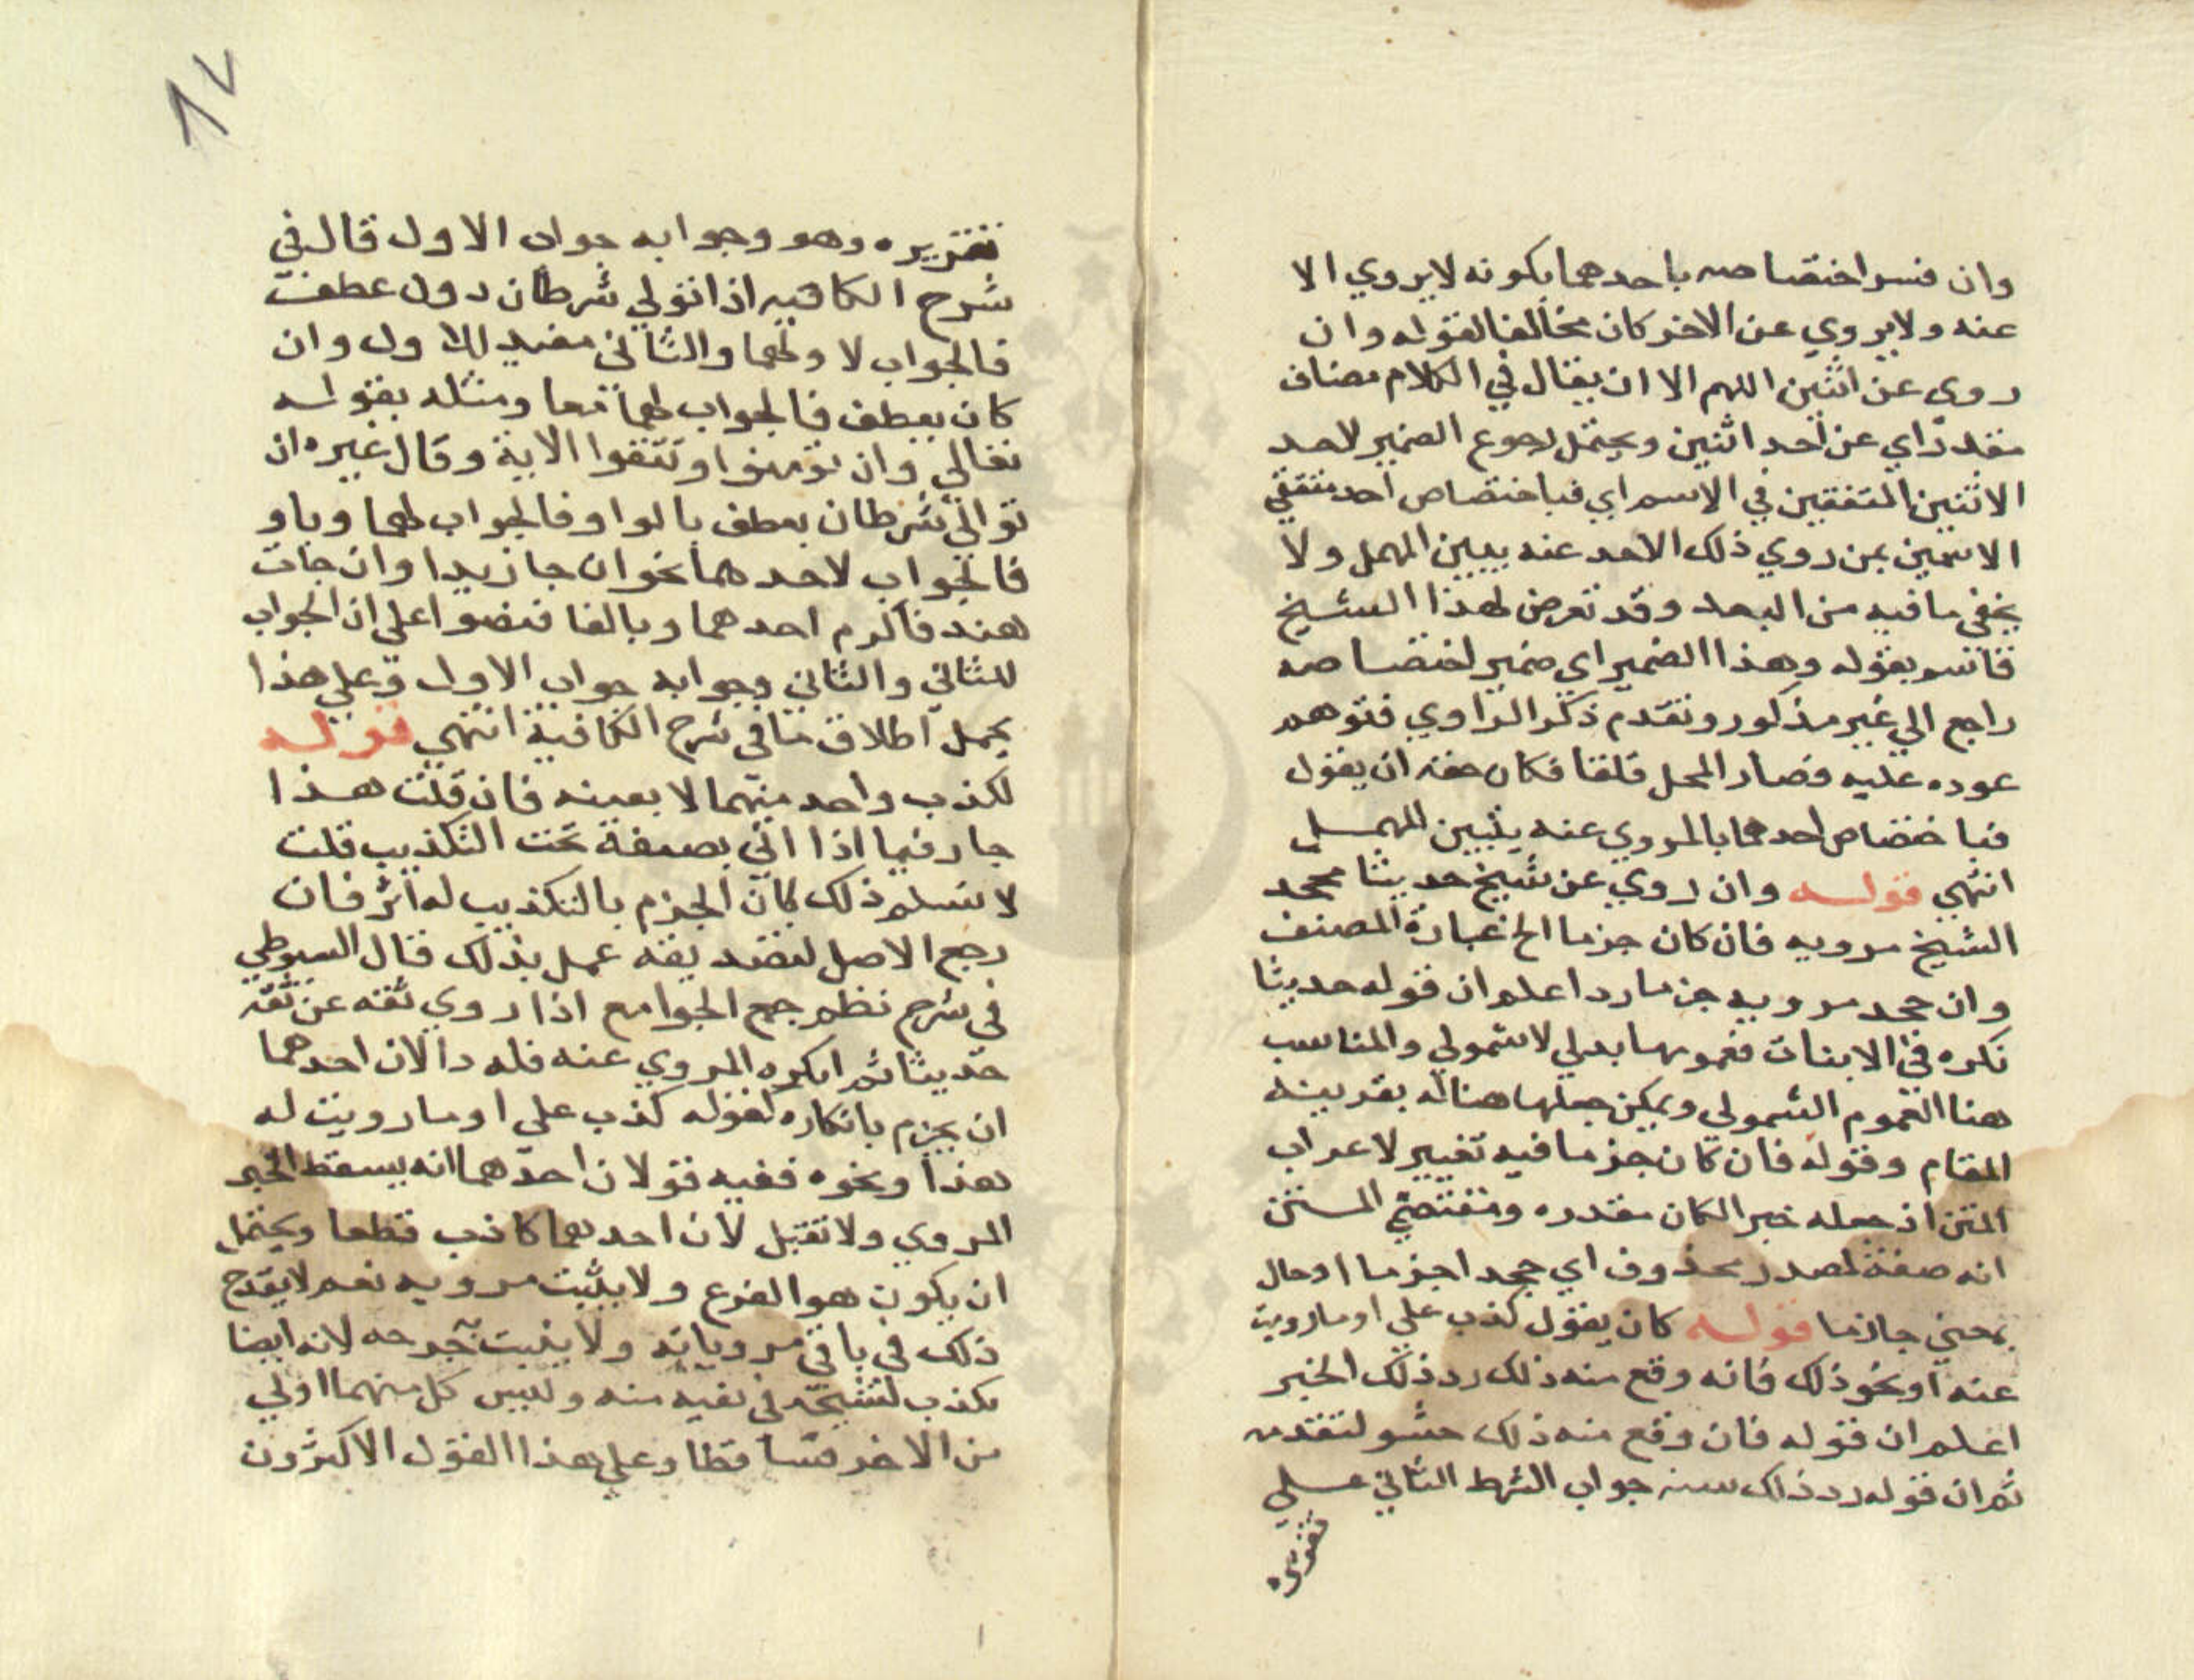 وان فسر اختصاصه باحدهما بكونه لا يروي الا
عنه ولا يروي عن الاخر كان مخالفا لقوله وان
روي عن اثنين اللهم الا ان يقال في الكلام مضاف
مقدر اي عن احد اثنين ويحتمل رجوع الضمير لاحد
الاثنين المتفقين في الاسم اي فباختصاص احد متفقي
الاسمين بمن روي ذلك الاحد عنه يبين المهمل ولا
يخفي ما فيه من البعد وقد تعرض لهذا الشيخ
قاسم بقوله وهذا الضمير اي ضمير اختصاصه
راجع الي غير مذكور وتقدم ذكر الراوي فتوهم
عوده عليه فصار المحل قلقا فكان حقه ان يقول
فباختصاص احدهما بالمروي عنه يتبين المهمل
انتهي قوله وان روي عن شيخ حديثا محجد
الشيخ مرويه فان كان جزما الخ عبارة المصنف
وان جحد مرويه جزما رد اعلم ان قوله حديثا
نكره في الاثبات فعمومها بدلي لا شمولي والمناسب
هنا العموم الشمولي ويمكن جعلها هنا له بقرينة
المقام وقوله فان كان جزما فيه تغيير لاعراب
المتن اذ جعله خبرا لكان مقدره ومقتضي المتن
انه صفة لمصدر محذوف اي جحدا جزما او حال
بمعني جازما قوله كان يقول كذب علي او ما رويت
عنه او نحو ذلك فانه وقع منه ذلك رد ذلك الخبر
اعلم ان قوله فان وقع منه ذلك حشو لتقدمه
ثم ان قوله رد ذلك جواب الشرط الثاني علي
تقريره
تقريره وهو وجوابه جواب الاول قال في
شرح الكافيه اذا تولي شرطان دون عطف
فالجواب لاولهما والثاني مقيد للاول وان
كان بعطف فالجواب لهما معا ومثله بقوله
تعالي وان تومنوا وتتقوا الاية وقال غيره ان
توالي شرطان بعطف بالواو فالجواب لهما وباو
فالجواب لاحدهما نحو ان جا زيدا وان جات
هند فاكرم احدهما وبالفا فنصوا علي ان الجواب
للثاني والثاني وجوابه جواب الاول وعلي هذا
يحمل اطلاق ما في شرح الكافية انتهي قوله
لكذب واحد منهما لا بعينه فان قلت هذا
جار فيما اذا اتي بصيغة تحت التكذيب قلت
لا نسلم ذلك كان الجزم بالتكذيب له اثر فان
رجع الاصل لتصديقه عمل بذلك قال السيوطي
في شرح نظم جمع الجوامع اذا روي ثقه عن ثقة
حديثا ثم انكره المروي عنه فله حالان احدهما
ان يجزم بانكاره كقوله كذب علي او ما رويت له
هذا ونحوه ففيه قولان احدهما انه يسقط الخبر
المروي ولا تقبل لان احدهما كاذب قطعا ويحتمل
ان يكون هو الفرع ولا يثبت مرويه نعم لا يقدح
ذلك في باقي مروياته ولا يثبت جرحه لانه ايضا
مكذب لشيخه في نفيه منه وليس كل منهما اولي
من الاخر فتساقطا وعلي هذا القول الاكثرون